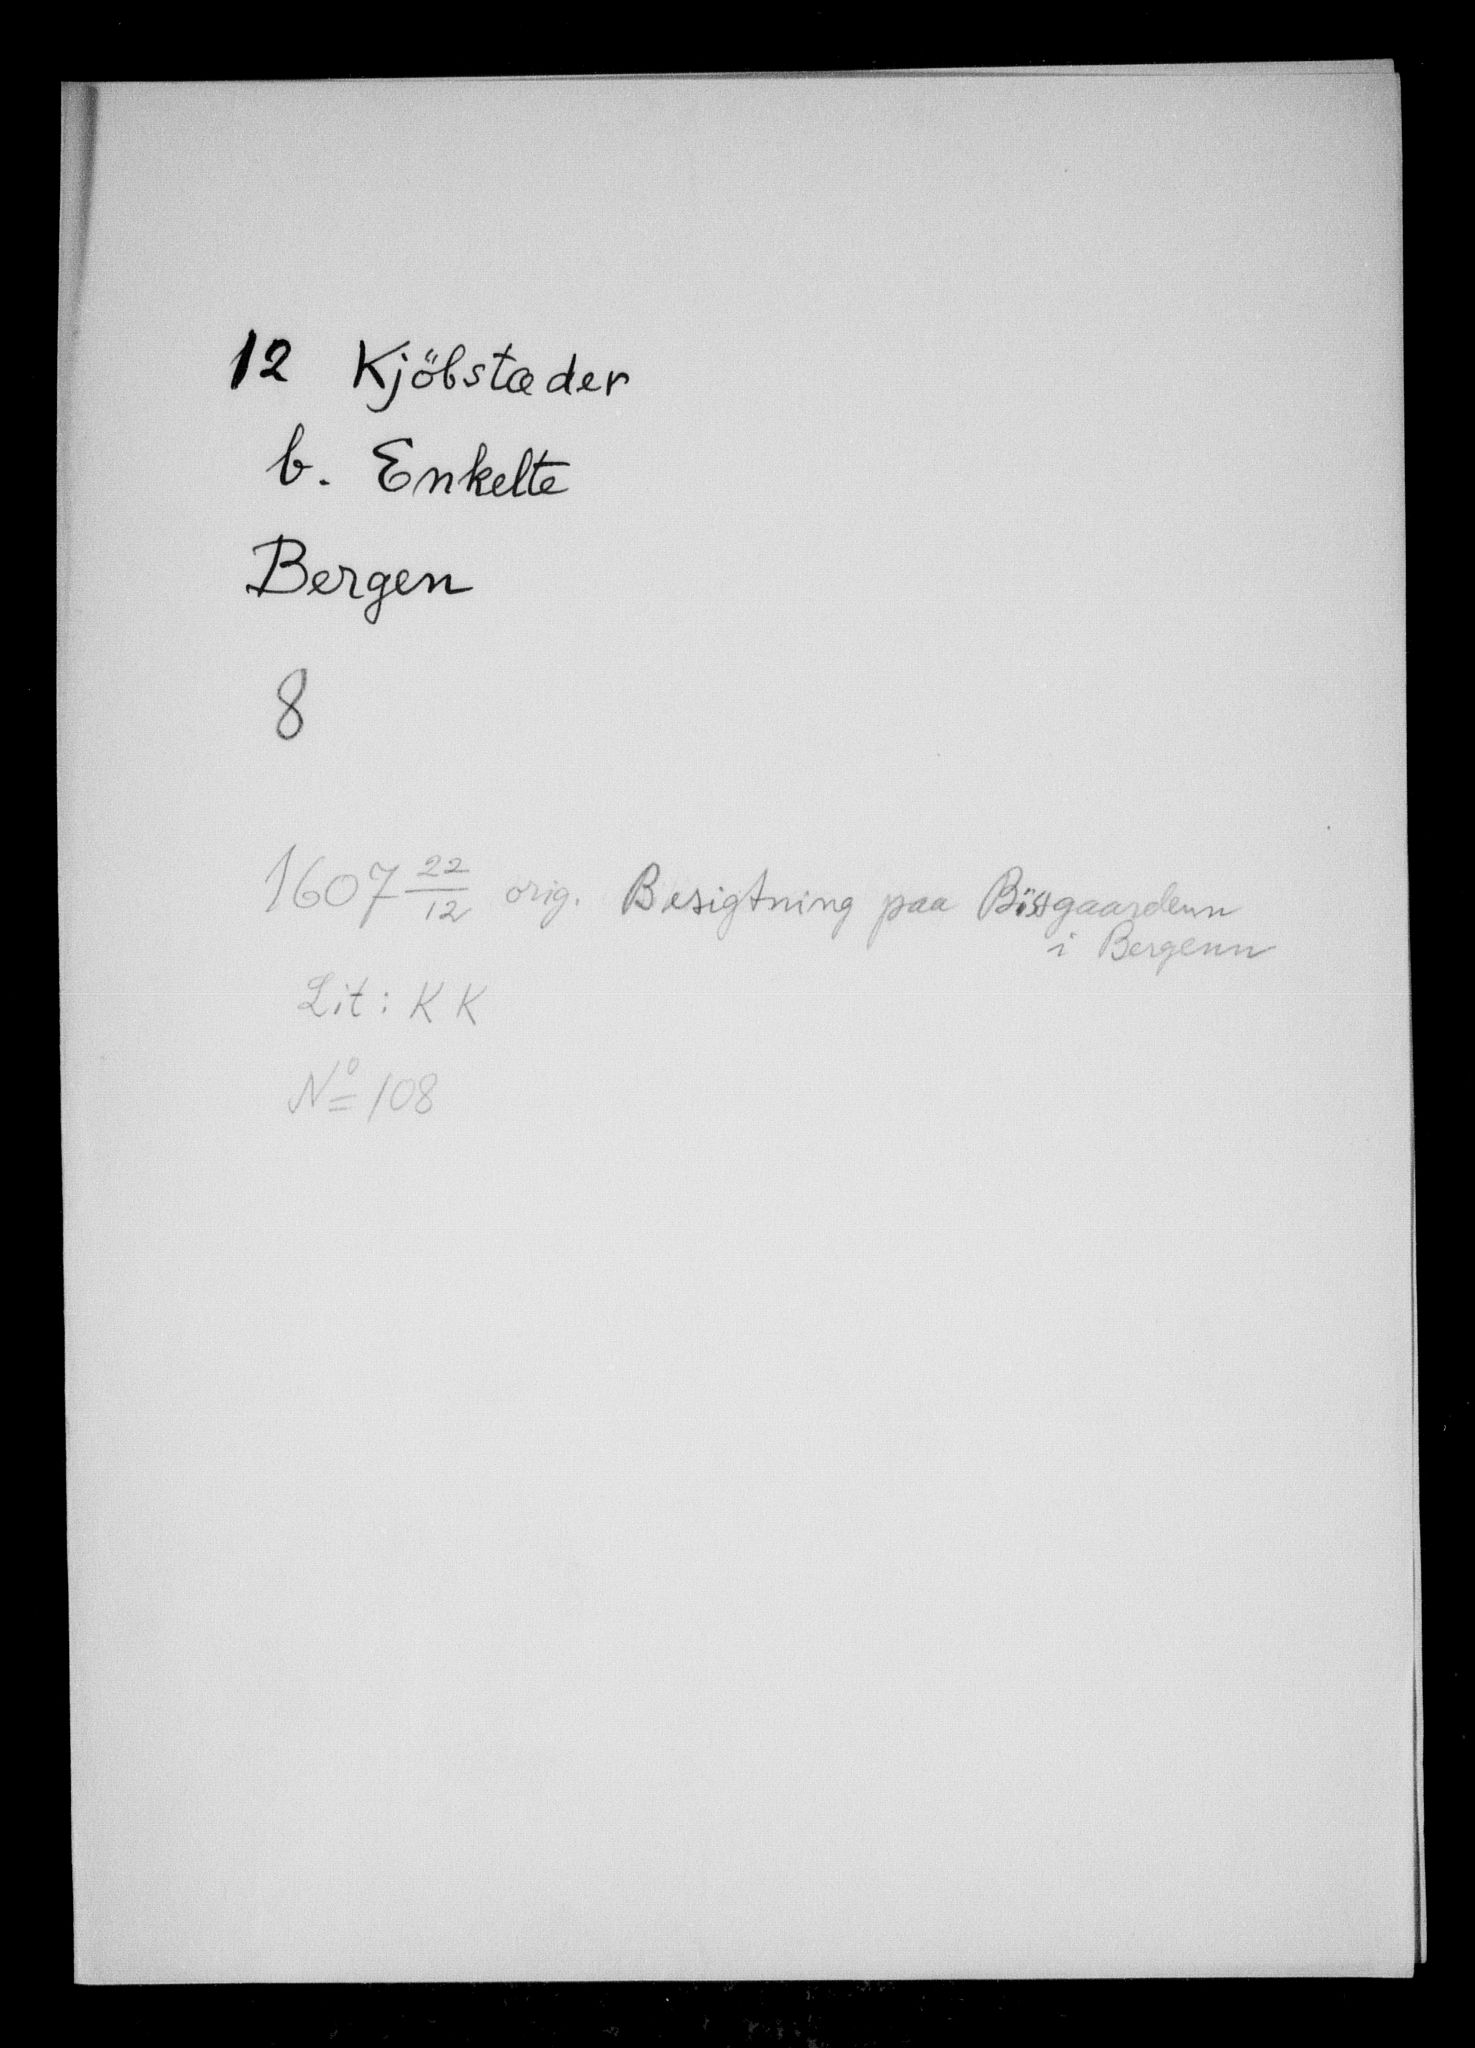 12 Kjöbstæder
b. Enkelte
Bergen
8
1607 22/12 orig. Besigtning paa Bissgaardenn
i Bergenn
Lit: K K
No 108